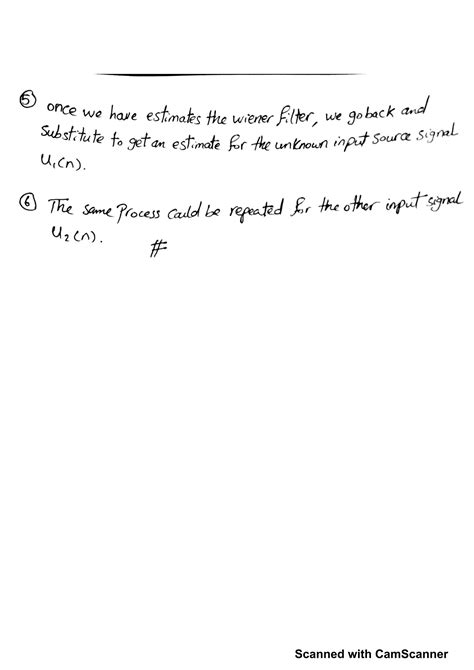 ⑤ once we have estimates the wiener filter, we go back and
Substitute to get an estimate for the unknown input source signal
u₁(n).
⑥ The same Process could be repeated for the other input signal
u₂(n). #
Scanned with CamScanner